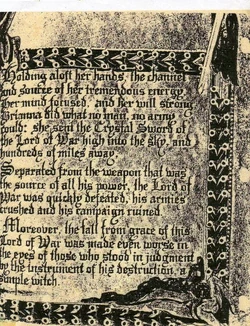 Holding aloft her hands, the channel
and source of her tremendous energy,
her mind focused, and her will strong,
Brianna did what no man, no army
could: she sent the Crystal Sword of
the Lord of War high into the sky, and
hundreds of miles away.
Separated from the weapon that was
the source of all his power, the Lord of
War was quickly defeated, his armies
crushed and his campaign ruined.
Moreover, the fall from grace of this
Lord of War was made even worse in
the eyes of those who stood in judgment
by the instrument of his destruction, a
simple witch.